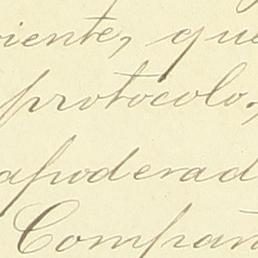 iente, que
protocolo,
apoderad
Compañ